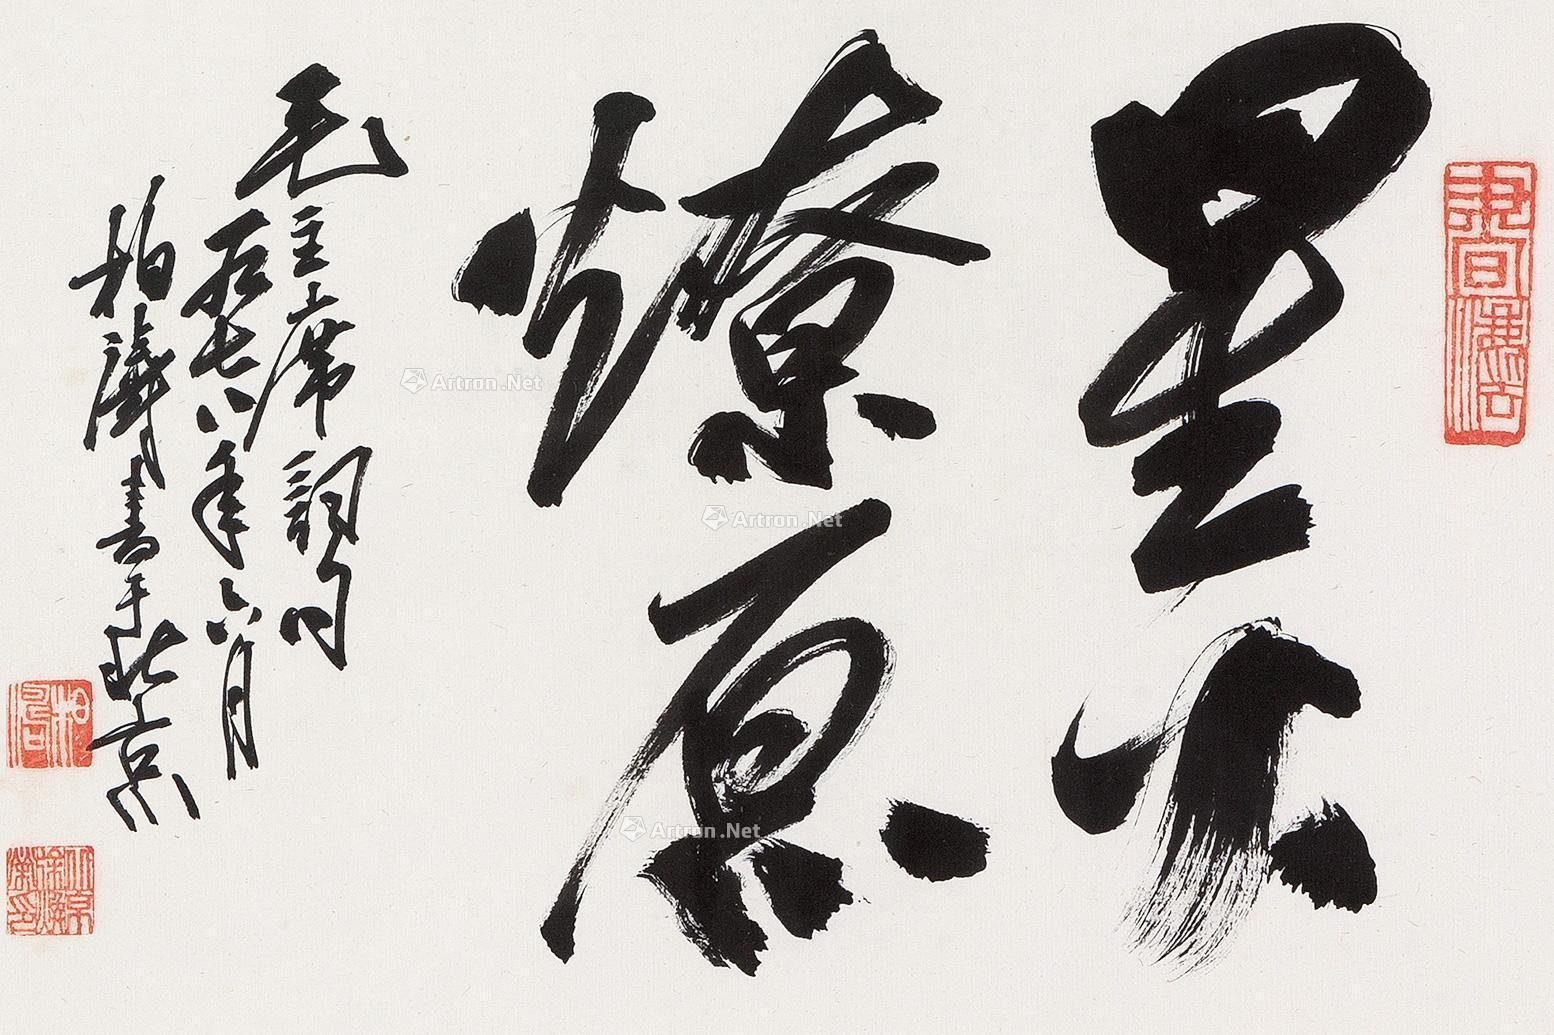 星火
燎原
毛主席词句
一九七八年六月
柏涛书于北京
Artron.Net
Artron.Net
Artron.Net